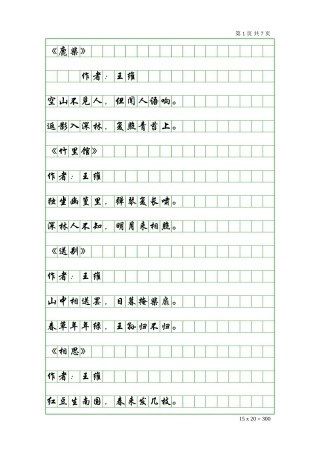 第 1 页 共 7 页
《鹿柴》
作者：王维
空山不见人，但闻人语响。
返影入深林，复照青苔上。
《竹里馆》
作者：王维
独坐幽篁里，弹琴复长啸。
深林人不知，明月来相照。
《送别》
作者：王维
山中相送罢，日暮掩柴扉。
春草年年绿，王孙归不归。
《相思》
作者：王维
红豆生南国，春来发几枝。
15 x 20 = 300